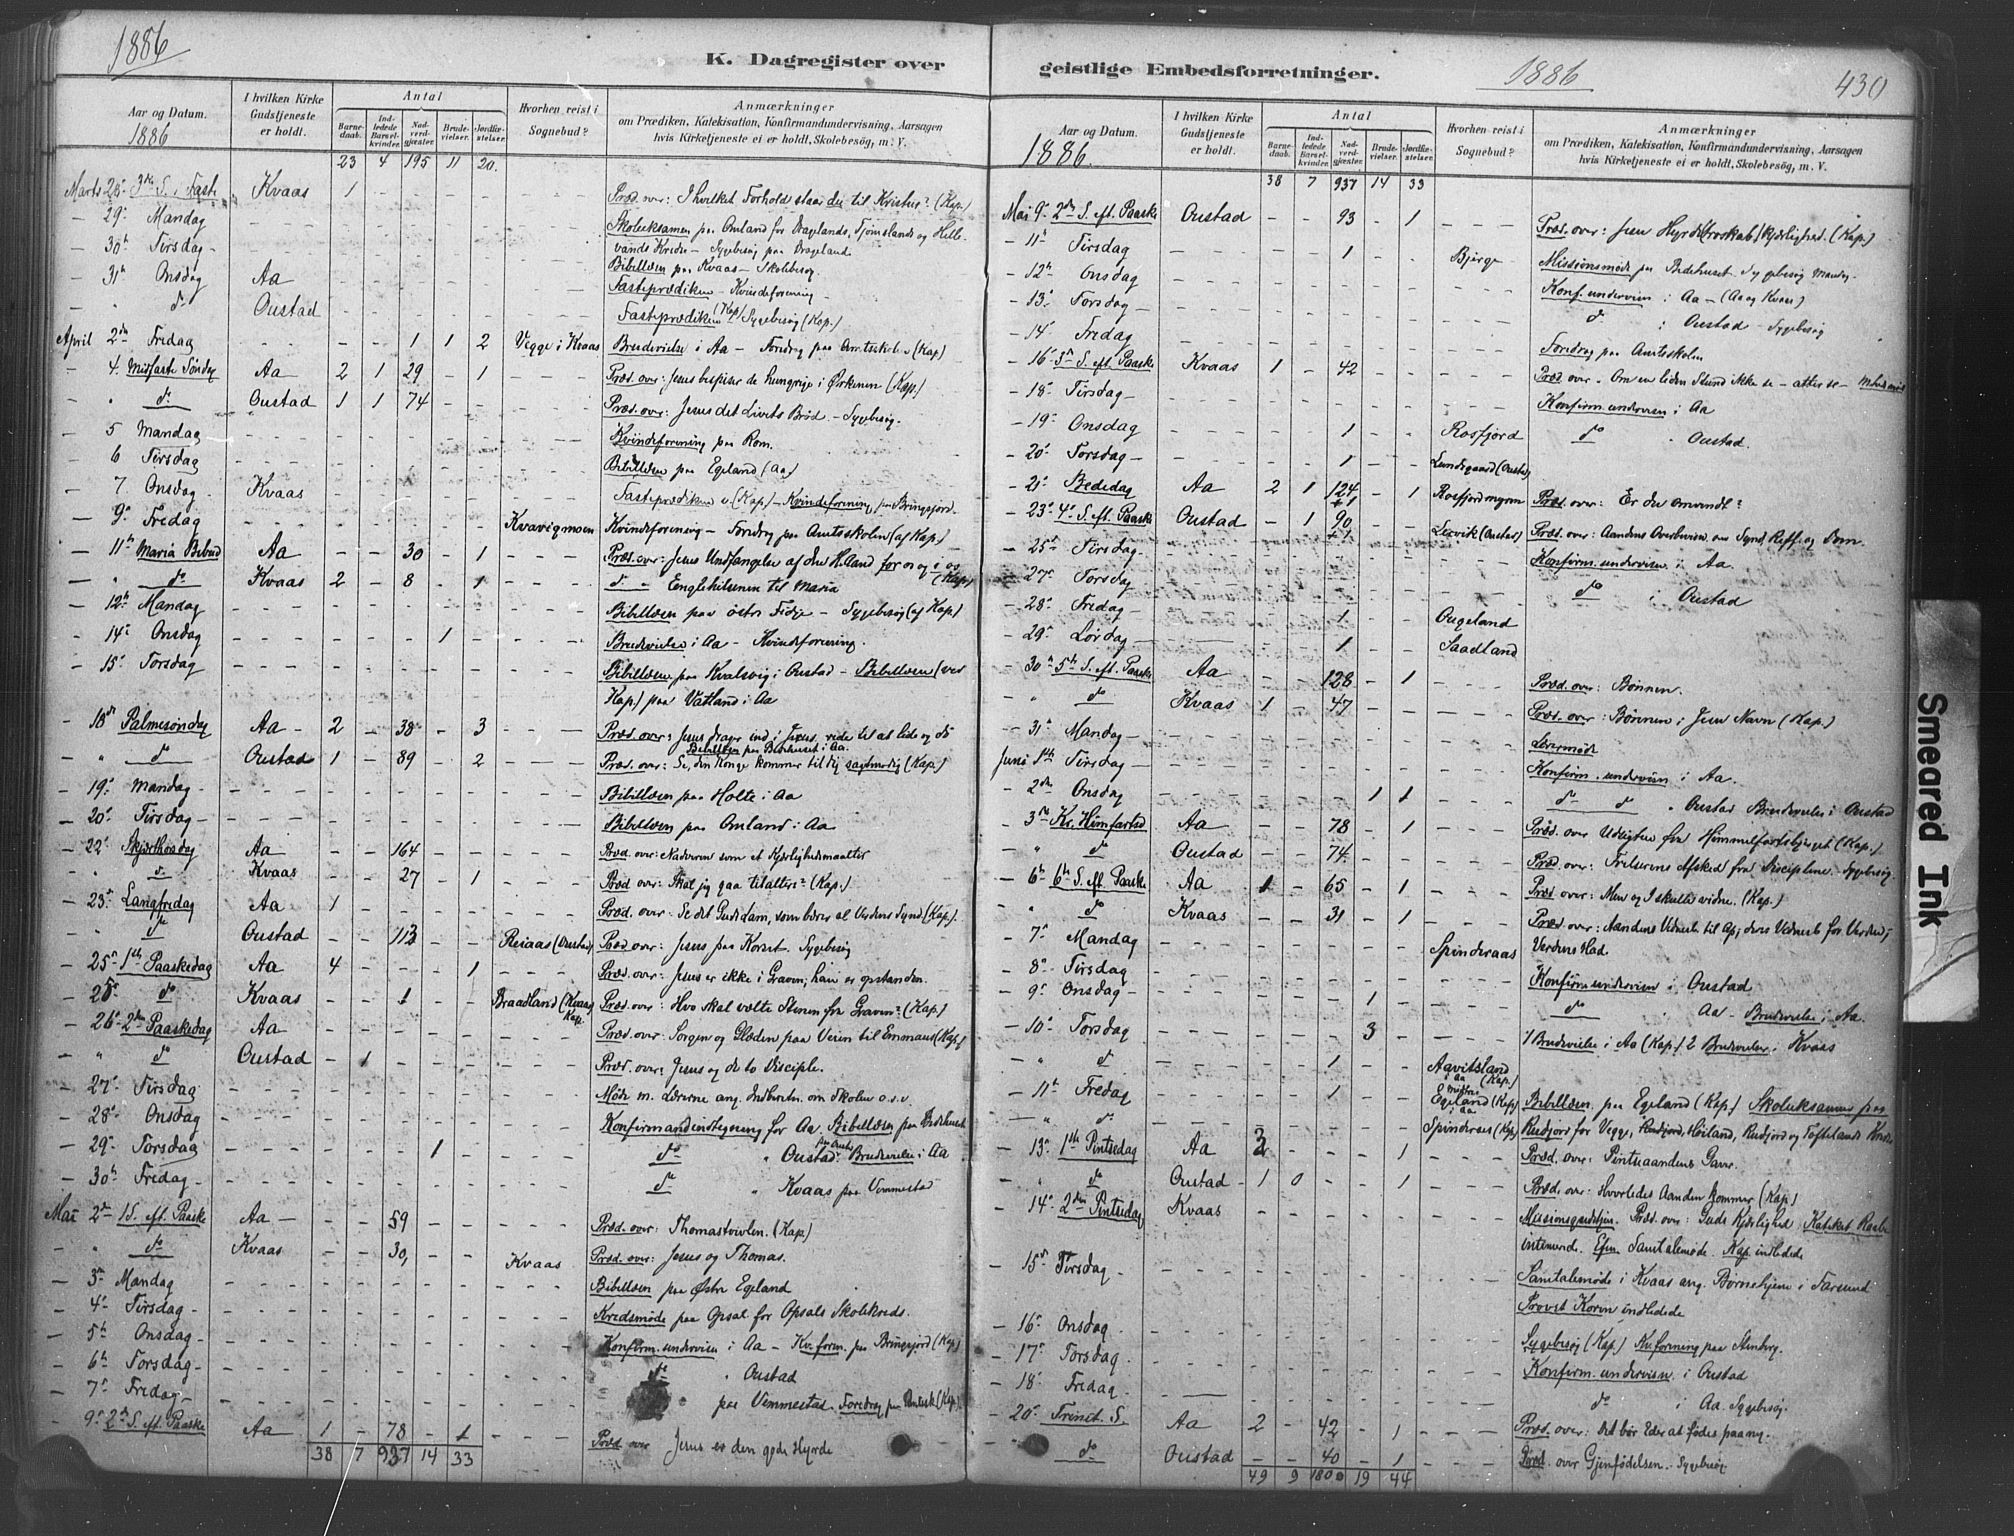 1886
K. Dagregister over
Aar og Datum.
1886
I hvilken Kirke Gudstjeneste er holdt.
Antal
Barnedaab.
Indledede Barselkvinder.
Nadverdgjæster.
Brudevielser.
Jordfæstelser.
Hvorhen reist i Sognebud?
Anmærkninger
om Prædiken, Katekisation, Konfirmandundervisning, Aarsagen
hvis Kirketjeneste ei er holdt, Skolebesøg, m. V.
23 4 195 11 20.
Marts 28de 3die S. i Faste Kvaas 1 - - - - Præd. over: I hvilket Forhold staar du til Kristus? (Kap)
- 29de Mandag - - - Skoleeksamen paa Omland for Dragelands, Tjømslands og Hille-
- 30te Tirsdag - - - vands Kredse - Sygebesøg paa Drageland
- 31te Onsdag Aa - - - Bibellæsn paa Kvaas - Skolebesøg.
Fasteprædiken - Kvindeforening -
- " do Oustad - - - Fasteprædiken (Kap) Sygebesøg (Kap.)
April 2den Fredag - - - 1 1 2 Vegge i Kvaas Brudevielse i Aa - Foredrag paa Amtsskolen (Kap)
- 4. Midfaste Søndag Aa 2 1 29 - 1 Præd. over: Jesus bespiser de hungrige i Ørkenen (Kap.)
- " do Oustad 1 1 74 - - Præd. over: Jesus det Livets Brød - Sygebesøg.
- 5 Mandag - - - Kvindeforening paa Rom.
- 6 Tirsdag - - - Bibellæsn paa Egeland (Aa)
- 7. Onsdag Kvaas - - - Fasteprædiken v. (Kap) - Kvindeforening paa Bringsjord.
- 9de Fredag - - - Kvavigmoen Kvindeforening - Foredrag paa Amtsskolen (af Kap.)
- 11te Maria Bebud Aa - - 30 - 1 Præd. over: Jesu Undfangelse af den Hel.aand for os og i os
- " do Kvaas 2 - 8 - 1 do " Englehilsenen til Maria (Kap)
- 12te Mandag - - - Bibellæsn paa østre Fidje - Sygebesøg (af Kap)
- 14de Onsdag - - - 1 - Brudevielse i Aa - Kvindeforening.
- 15de Torsdag - - - Bibellæsn paa Kvalsvig i Oustad - Bibellæsn (ved
Kap) paa Vatland i Aa
- 18de Palmesøndag Aa 2 - 38 - 3 Præd. over: Jesus drager ind i Jerus. rede til at lide og dø
Bibellæsn paa Bedehuset i Aa.
- " do Oustad 1 - 89 - 2 Præd. over: Se, din Konge kommer til dig sagtmodig (Kap.)
- 19de Mandag - - - Bibellæsn paa Holte i Aa
- 20de Tirsdag - - - Bibellæsn paa Omland i Aa
- 22de Skjærthorsdag Aa - - 164 - - Præd. over: Nadveren som et Kjærlighedsmaaltid
" do Kvaas - - 27 - 1 Præd over: Skal jeg gaa til alters? (Kap.)
- 23de Langfredag Aa 1 - - - - Præd. over: Se det Guds Lam, som bærer al Verdens Synd (Kap).
- " do Oustad - - 113 - - Reiaas (Oustad) Præd over: Jesus paa Korset. Sygebesøg
- 25de 1ste Paaskedag Aa 4 - - - 1 Præd. over: Jesus er ikke i Graven; han er opstanden.
- 25de do Kvaas - - 1 - - Braadland (Kvaas) Kap. Præd. over: Hvo skal vælte Stenen fra Graven? (Kap.)
- 26de 2den Paaskedag Aa - - - Præd. over: Sorgen og Glæden paa Veien til Emmaus (Kap.)
- " do Oustad - 1 - - - Præd. over: Jesus og de to Disciple.
- 27de Tirsdag - - - Møde m. Lærerne ang. Indberetn. om Skolen o.s.v.
- 28de Onsdag - - - Konfirmandindtegning for Aa. Bibellæsn paa Bedehuset
- 29de Torsdag - - - 1 - do " Oustad. Brudevielse i Aa
- 30te Fredag - - - do " Kvaas paa Vemmestad
Mai 2den 1 S. eft. Paaske Aa - - 59 - - Præd. over: Thomastvivlen. (Kap)
- " do Kvaas - - 30, - - Kvaas Præd. over: Jesus og Thomas.
- 3die Mandag - - - Bibellæsn paa Østre Egeland
- 4de Tirsdag - - - Kredsmøde paa Opsal for Opsals Skolekreds.
- 5te Onsdag - - - Konfirm. undervisn i Aa - Kv.foren. paa Bringsjord (Kap.)
- 6te Torsdag - - - do " Oustad
- 7de Fredag - - - paa Vemmestad. Foredrag paa Amtssk. (Kap).
- 9de 2den S. eft. Paaske Aa 1 - 78 - 1 Præd over Jesus er den gode Hyrde
38 7 937 14 33
geistlige Embedsforretninger.
1886
430
Aar og Datum.
1886.
I hvilken Kirke Gudstjeneste er holdt.
Antal
Barnedaab.
Indledede Barselkvinder.
Nadverdgjæster.
Brudevielser.
Jordfæstelser.
Hvorhen reist i Sognebud?
Anmærkninger
om Prædiken, Katekisation, Konfirmandundervisning, Aarsagen
hvis Kirketjeneste ei er holdt, Skolebesøg, m. V.
38 7 937 14 33
Mai 9de 2den S. eft. Paaske Oustad - - 93 - 1 Præd. over: Jesu Hyrdetroskab (kjærlighed. (Kap.)
- 11te Tirsdag - - 1 - - Bjerge Missionsmøde paa Bedehuset Sygebesøg Mandag.
- 12te Onsdag - - - Konf. undervisn i Aa - (Aa og Kvaas)
- 13de Torsdag - - - do i Oustad - Sygebesøg
- 14de Fredag - - - Foredrag paa Amtsskolen
- 16de 3die S. eft. Paaske Kvaas 1 - 42 - - Præd over. Om en liden Stund ikke se - atter se -
- 18de Tirsdag - - - Konfirm. undervisn i Aa
- 19de Onsdag - - 1 - - Rosfjord do " Oustad.
- 20de Torsdag - - 1 - - Lundegaard (Oustad)
- 21de Bededag Aa 2 1 124 +1 - 1 Rosfjordmyren Præd. over: Er du omvendt?
- 23de 4de S. eft. Paaske Oustad - 1 90 +1 - - Lervik (Oustad) Præd. over: Aandens Overbevisn. om Synd, Retf. og Dom
- 25de Tirsdag - - - Konfirm. undervisn i Aa.
- 27de Torsdag - - - do i Oustad
- 28de Fredag - - 1 - - Ougeland
- 29de Lørdag - - 1 - - Saadland
- 30te 5te S. eft. Paaske Aa - - 128 - 1 Præd. over: Bønnen.
" do Kvaas 1 - 47 - - Præd. over: Bønnen i Jesu Navn (Kap.)
- 31te Mandag - - - Lærermøde
Juni 1ste Tirsdag - - - Konfirm. undervisn i Aa.
- 2den Onsdag - - - 1 1 do do " Oustad Brudevielse i Oustad
- 3die Kr. Himfartsd Aa - - 78 - 1 Præd. over Udsigten fra Himmelfartsbjerget (Kap.)
- " do Oustad - - 74. - - Præd. over: Frelserens Afsked fra Disciplene - Sygebesøg.
- 6te 6te S. eft. Paaske Aa 1 - 65 - 1 Præd over: Men og I skulle vidne. (Kap.)
- " do Kvaas - - 31 - 1 Præd. over: Aandens Vidnesb. til Ap; deres Vidnesb. for Verden;
- 7de Mandag - - - Spinderaas Verdens Had.
- 8de Tirsdag - - - Konfirm. undervisn i Oustad
- 9de Onsdag - - - 1 - do " Aa - Brudevielse i Aa.
- 10de Torsdag - - - 3 - 1 Brudevielse i Aa (Kap.) 2 Brudevielser i Kvaas
- " do - - 1 - - Aavitsland i Aa (Kap.)
- 11te Fredag - - 1 - - Egeland (Kap.) i Aa Bibellæsn. paa Egeland (Kap.) Skoleeksamen paa
- " do - - - Spinderaas (Kap) Rudjord for Vegge, Rudjord, Høiland, Rudjord og Toftelands Kredse
- 13de 1ste Pintsedag Aa 3 - - - 1 Præd. over: Pintseaandens Gave.
" do Oustad 1 0 - - 1 Præd. over: Hvorledes Aanden kommer (Kap)
- 14de 2den Pintsedag Kvaas - - - Missionsgudstjen. Præd. over: Guds Kjærlighed
Samtalemøde. Kap. indledede
- 15de Tirsdag - - - Samtalemøde i Kvaas ang. Børnehjem i Farsund
Provst Koren indledede
- 16de Onsdag. - - - Sygebesøg (Kap.) Kv.forening paa Stenberg.
- 17de Torsdag. - - - Konfirm. undervisn. i Oustad
- 18de Fredag. - - - do i Aa. Sygebesøg.
- 20de Trinit. S. Aa 2 - 42 - 1 Præd. over: Det bør Eder at fødes paany.
" do Oustad - - 40 - 1 Præd over Gjenfødelsen. - Sygebesøg
49 9 1800 19 44
Smeared Ink